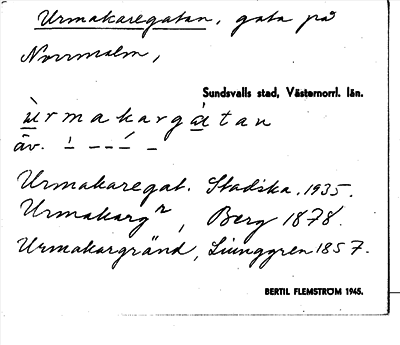 Urmakaregatan, gata på
Norrmalm,
Sundsvalls stad, Västernorrl. län.
ùrmakargátan
äv. –́ – – –́ –
Urmakaregat. Stadska. 1935.
Urmakargr, Berg 1878.
Urmakargränd, Ljunggren 1857.
BERTIL FLEMSTRÖM 1945.